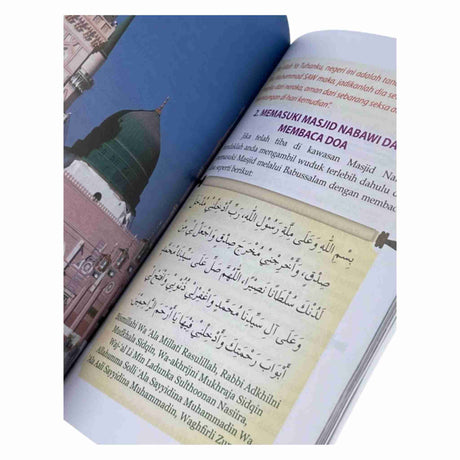 Ya Tuhanku, negeri ini adalah
Muhammad SAW maka, jadikanlah dia
dari neraka, aman dari sebarang seksa
di hari kemudian".
2. MEMASUKI MASJID NABAWI
MEMBACA DOA
Jika telah tiba di kawasan Masjid
mengambil wuduk terlebih dahulu
Masjid melalui Babussalam dengan
seperti berikut:
بِسْمِ اللهِ وَعَلَى مِلَّةِ رَسُوْلِ اللهِ، رَبِّ أَدْخِلْنِيْ مُدْخَلَ
صِدْقٍ، وَأَخْرِجْنِيْ مُخْرَجَ صِدْقٍ وَاجْعَلْ لِيْ مِنْ
لَدُنْكَ سُلْطَانًا نَصِيْرًا. اَللّٰهُمَّ صَلِّ عَلَى سَيِّدِنَا مُحَمَّدٍ
وَعَلَى آلِ سَيِّدِنَا مُحَمَّدٍ وَاغْفِرْلِيْ ذُنُوْبِيْ وَافْتَحْ لِيْ
أَبْوَابَ رَحْمَتِكَ وَأَدْخِلْنِيْ فِيْهَا يَا أَرْحَمَ الرَّاحِمِيْنَ
Bismillahi Wa 'Ala Millati Rasulillah, Rabbi Adkhilni
Mudkhala Sidqin, Wa-akhrijni Mukhraja Sidqin
Waj-'al Li Min Ladunka Sulthoonan Nasiira,
Allahumma Solli 'Ala Sayyidina Muhammadin Wa
'Ala Aali Sayyidina Muhammadin, Waghfirli